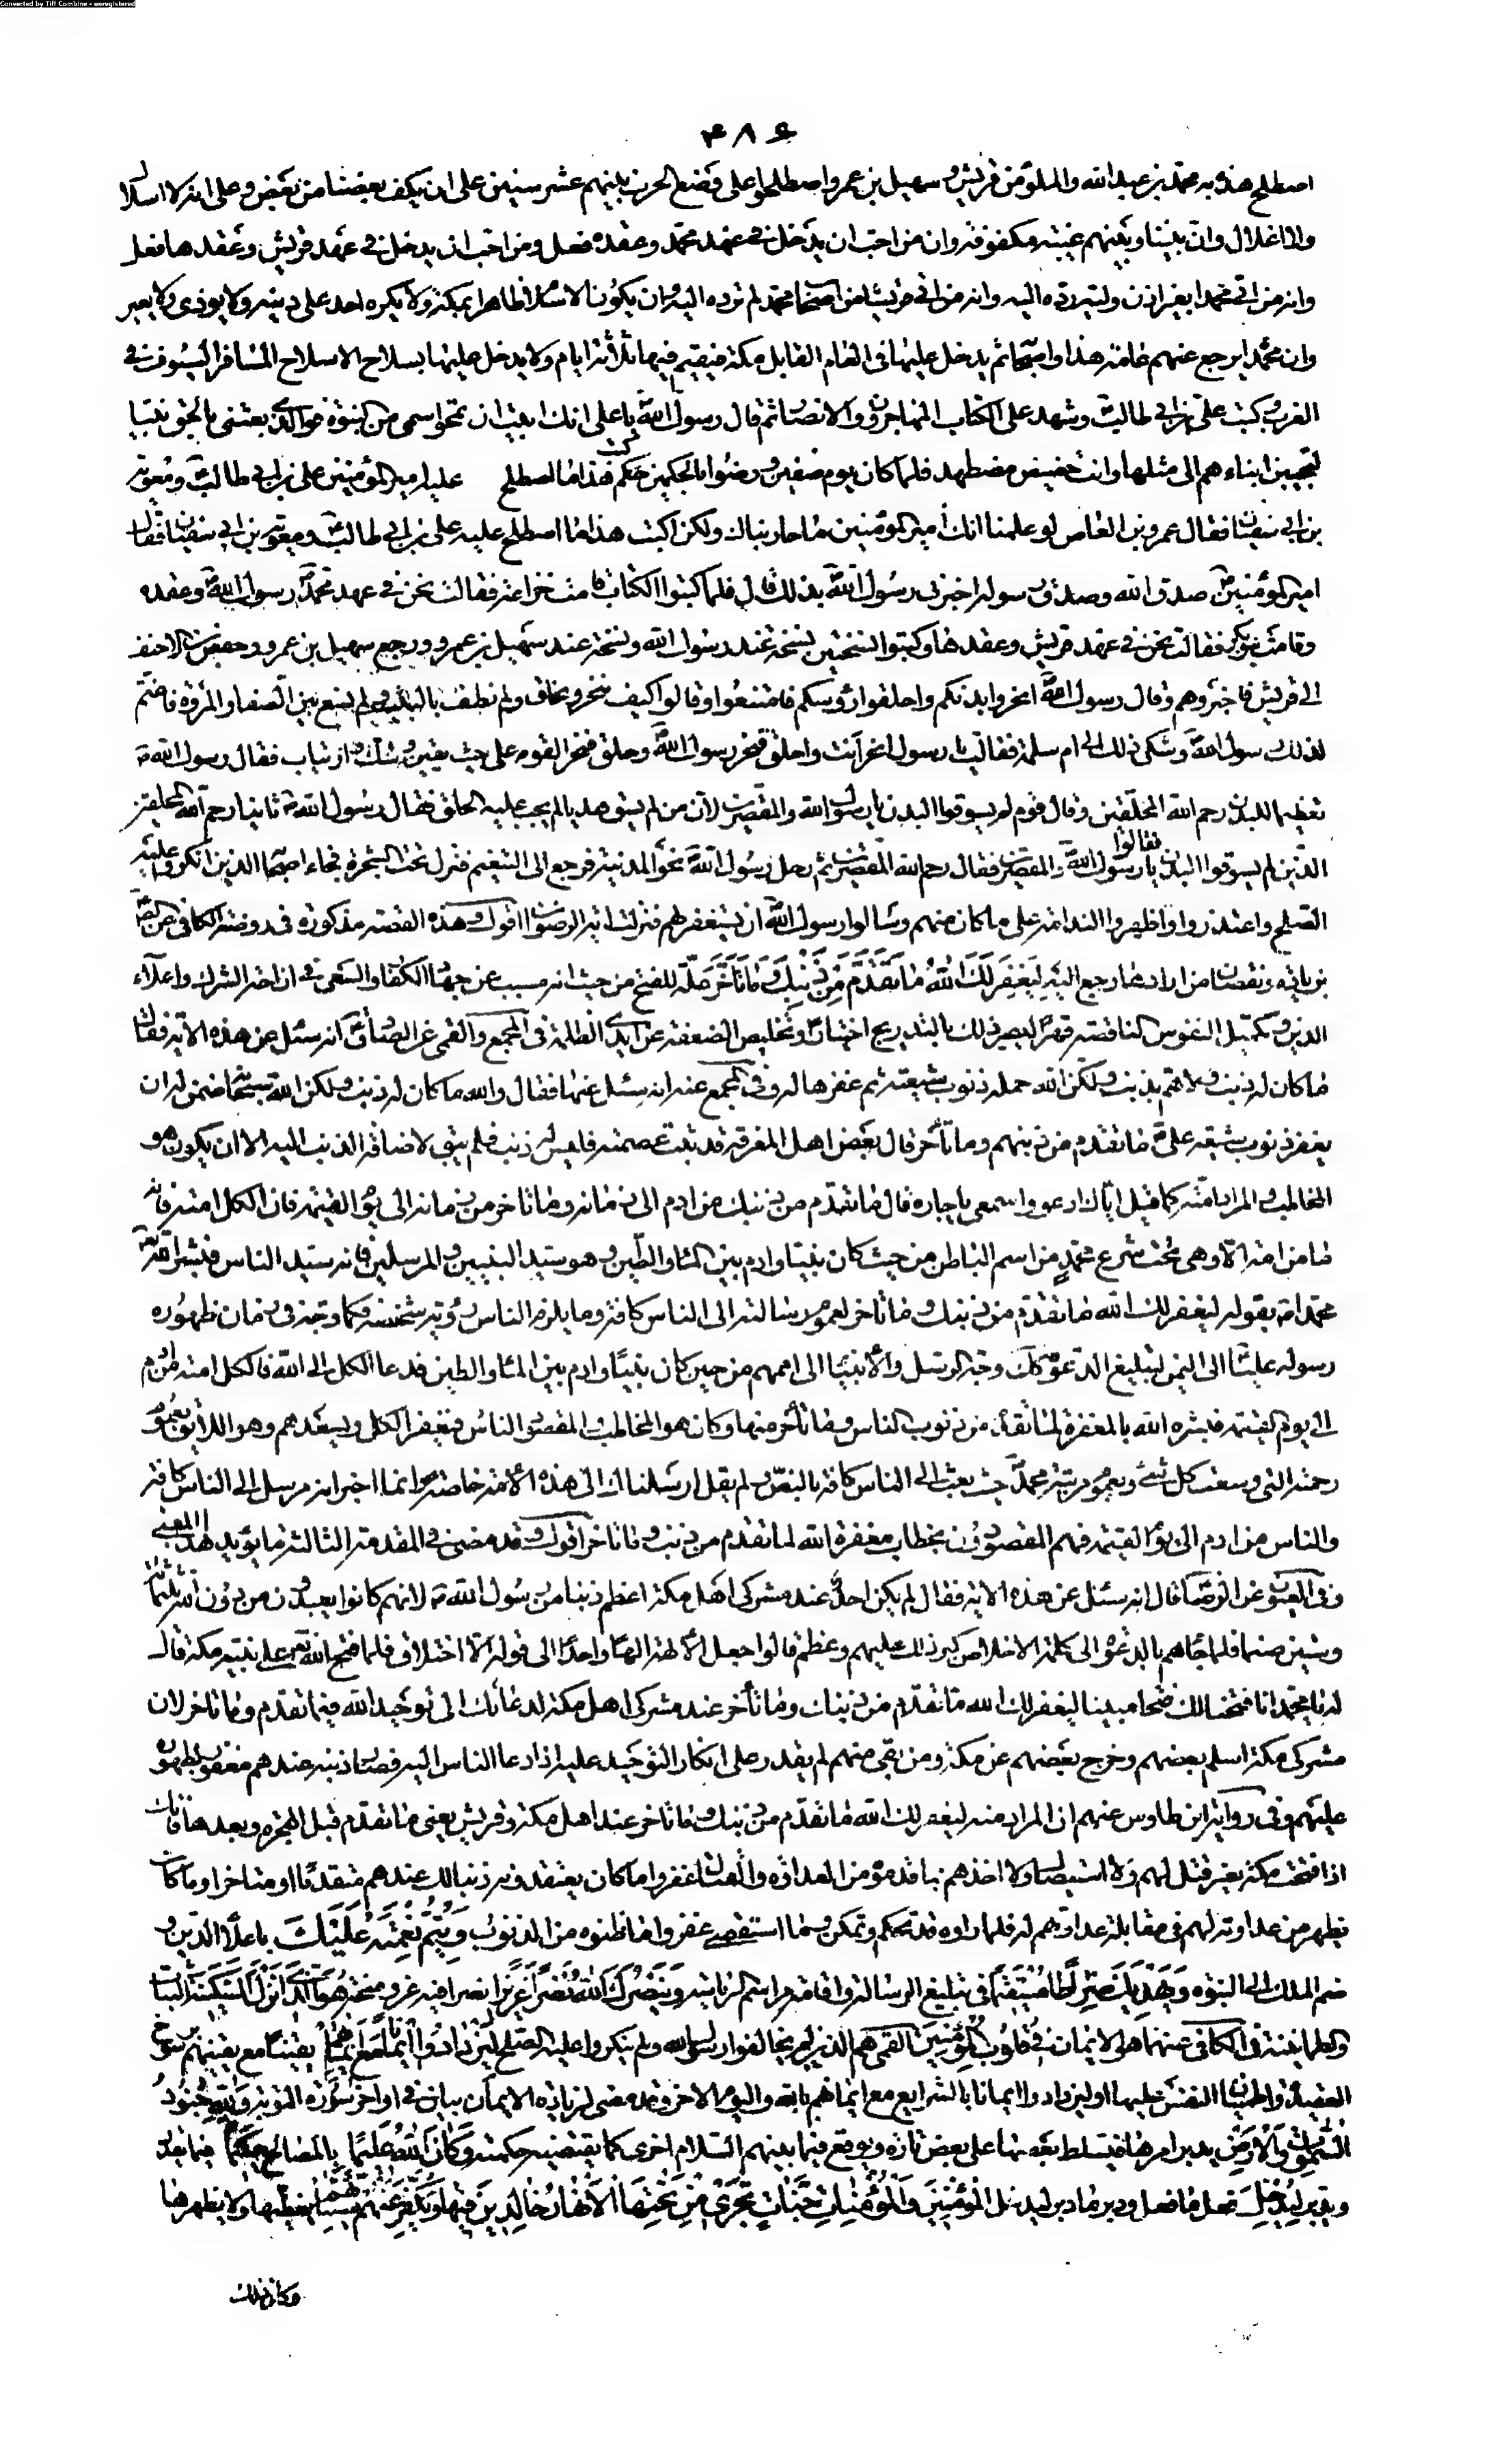 Converted by Tiff Combine - unregistered
۴۸۶
اصطلح هذا به محمد بن عبد الله والملؤ من قريش و سهيل بن عمر واصطلحوا على وضع الحرب بينهم عشر سنين على ان يكف بعضنا من بعض وعلى انه لا اسلال
ولا اغلال وان بيننا وبينهم عيبته مكفوفة وان من احب ان يدخل في عهد محمد وعقده فعل ومن احب ان يدخل في عهد قريش وعقدها فعل
وانه من اتى محمدا بغير اذن وليه رده اليه وانه من اتى قريشا من اصحاب محمد لم ترده اليه وان يكون الاسلام ظاهرا بمكة ولا يكره احد على دينه ولا يوذى ولا يعير
وان محمدا يرجع عنهم عامه هذا واصحابه ثم يدخل علينا في العام القابل مكة فيقيم فيها ثلاثة ايام ولا يدخل علينا بسلاح الا سلاح المسافر السيوف في
القرب وكتب علي بن ابي طالب وشهد على الكتاب المهاجرون والانصار ثم قال رسول الله يا علي انك ابيت ان تمحو اسمي من النبوة فوالذي بعثني بالحق نبيا
لتجيبن ابناءهم الى مثلها وانت مضيض مضطهد فلما كان يوم صفين ورضوا بالحكمين كتب هذا ما اصطلح عليه امير المؤمنين علي بن ابي طالب ومعوية
بن ابي سفيان فقال عمرو بن العاص لو علمنا انك امير المؤمنين ما حاربناك ولكن اكتب هذا ما اصطلح عليه علي بن ابي طالب ومعوية بن ابي سفيان فقال
امير المؤمنين صدق الله وصدق رسوله اخبرني رسول الله بذلك قال فلما كتبوا الكتاب قامت خزاعة فقالت نحن في عهد محمد رسول الله وعقده
وقامت بنو بكر فقالت نحن في عهد قريش وعقدها وكتبوا النسختين نسخة عند رسول الله ونسخة عند سهيل بن عمرو ورجع سهيل بن عمرو وحفص بن الاحنف
الى قريش فاخبروهم وقال رسول الله انحروا بدنكم واحلقوا رؤسكم فامتنعوا وقالوا كيف ننحر ونحلق ولم نطف بالبيت ولم نسع بين الصفا والمروة فاغتم
لذلك رسول الله وشكى ذلك الى ام سلمة فقالت يا رسول الله انحر انت واحلق فنحر رسول الله وحلق فنحر القوم على حيث يقين وشك وارتياب فقال رسول الله ص
تعظيما للبدن رحم الله المحلقين وقال قوم لم يسوقوا البدن يا رسول الله والمقصرين لان من لم يسق هديا لم يجب عليه الحلق فقال رسول الله ص ثانيا رحم الله المحلقين
الذين لم يسوقوا البدن فقالوا يا رسول الله والمقصرين فقال رحم الله المقصرين ثم رحل رسول الله نحو المدينة فرجع الى التنعيم فنزل تحت الشجرة فجاء اصحابه الذين انكروا عليه
الصلح واعتذروا واظهروا الندامة على ما كان منهم وسالوا رسول الله ان يستغفر لهم فنزلت اية الرضوان اقول وهذه القصة مذكورة في روضة الكافي عن الص
بزيادة ونقصان من ارادها رجع اليه لِيَغْفِرَ لَكَ اللهُ مَا تَقَدَّمَ مِنْ ذَنْبِكَ وَمَا تَأَخَّرَ علة للفتح من حيث انه مسبب عن جهاد الكفار والسعي في ازاحة الشرك واعلاء
الدين وتكميل النفوس الناقصة قهرا ليصير ذلك بالتدريج اختيارا وتخليص الضعفة عن ايدي الظلمة في المجمع والقمي عن الصادق انه سئل عن هذه الاية فقال
ما كان له ذنب ولا هم بذنب ولكن الله حمله ذنوب شيعته ثم غفرها له وفي المجمع عنه انه سئل عنها فقال والله ما كان له ذنب ولكن الله سبحانه ضمن له ان
يغفر ذنوب شيعة علي ما تقدم من ذنبهم وما تأخر قال بعض اهل المعرفة قد ثبت عصمته فليس له ذنب فلم يبق لاضافة الذنب اليه الا ان يكون هو
المخاطب والمراد امته كما قيل اياك ادعو واسمعي يا جاره قال ما تقدم من ذنبك من ادم الى زمانه وما تاخر من زمانه الى يوم القيمة فان الكل امته فانه
ما من امة الا وهي تحت شرع محمد من اسم الباطن من حيث كان نبيا وادم بين الماء والطين وهو سيد النبيين والمرسلين فانه سيد الناس فبشر الله
محمدا ص بقوله ليغفر لك الله ما تقدم من ذنبك وما تاخر لعموم رسالته الى الناس كافة وما يلزم الناس رؤية شخصه فكما وجه في زمان ظهوره
رسوله عليا الى اليمن لتبليغ الدعوة كذلك وجه الرسل والانبياء الى اممهم من حين كان نبيا وادم بين الماء والطين فدعا الكل الى الله فالكل امته من ادم
الى يوم القيمة فبشره الله بالمغفرة لما تقدم من ذنوب الناس وما تأخر منها وكان هو المخاطب والمقصود الناس فيغفر الكل ويسعدهم وهو اللائق بعموم
رحمته التي وسعت كل شئ وبعموم مرتبة محمد حيث بعث الى الناس كافة بالنص ولم يقل ارسلناك الى هذه الامة خاصة وانما اخبر انه مرسل الى الناس كافة
والناس من ادم الى يوم القيمة فهم المقصودون بخطاب مغفرة الله لما تقدم من ذنب وما تاخر اقول وقد مضى في المقدمة الثالثة ما يؤيد هذا المعنى
وفي العيون عن الرضا قال انه سئل عن هذه الاية فقال لم يكن احد عند مشركي اهل مكة اعظم ذنبا من رسول الله ص لانهم كانوا يعبدون من دون الله ثلثمائة
وستين صنما فلما جاءهم بالدعوة الى كلمة الاخلاص كبر ذلك عليهم وعظم قالوا اجعل الالهة الها واحدا الى قوله الا اختلاق فلما فتح الله تعالى على نبيه مكة قال
له يا محمد انا فتحنا لك فتحا مبينا ليغفر لك الله ما تقدم من ذنبك وما تأخر عند مشركي اهل مكة لدعائك الى توحيد الله فيما تقدم وما تاخر لان
مشركي مكة اسلم بعضهم وخرج بعضهم عن مكة ومن بقي منهم لم يقدر على انكار التوحيد عليه اذا دعا الناس اليه فصار ذنبه عندهم مغفورا بظهوره
عليهم وفي رواية ابن طاوس عنهم ان المراد منه ليغفر لك الله ما تقدم من ذنبك وما تاخر عند اهل مكة وقريش يعني ما تقدم قبل الهجرة وبعدها فانك
اذا فتحت مكة بغير قتل لهم ولا استيصال ولا اخذهم بما قدموه من العداوة والقتال غفروا ما كان يعتقدونه ذنبا لك عندهم متقدما او متاخرا وما كان
يظهر من عداوته لهم في مقابلة عداوتهم له فلما راوه قد تحكم وتمكن وما استقصى غفروا ما ظنوه من الذنوب وَيُتِمَّ نِعْمَتَهُ عَلَيْكَ باعلاء الدين و
ضم الملك الى النبوة وَيَهْدِيَكَ صِرَاطًا مُسْتَقِيمًا في تبليغ الرسالة واقامة مراسم الرياسة وَيَنْصُرَكَ اللهُ نَصْرًا عَزِيزًا نصرا فيه عز ومنعة هُوَ الَّذِي أَنْزَلَ السَّكِينَةَ الثبات
والطمانينة في الكافي عنهما هي الايمان فِي قُلُوبِ الْمُؤْمِنِينَ القمي هم الذين لم يخالفوا رسول الله ولم ينكروا عليه الصلح لِيَزْدَادُوا إِيمَانًا مَعَ إِيمَانِهِمْ يقينا مع يقينهم برسوخ
العقيدة واطمينان النفس عليها او ليزدادوا ايمانا بالشرايع مع ايمانهم بالله واليوم الاخر وقد مضى لزيادة الايمان بيان في اواخر سورة التوبة وَلِلّهِ جُنُودُ
السَّمٰوَاتِ وَالْأَرْضِ يدبر امرها فيسلط بعضها على بعض تارة ويوقع فيما بينهم السلام اخرى كما يقتضيه حكمته وَكَانَ اللهُ عَلِيمًا بالمصالح حَكِيمًا فيما يقدر
ويدبر لِيُدْخِلَ فعل ما فعل ودبر ما دبر ليدخل الْمُؤْمِنِينَ وَالْمُؤْمِنَاتِ جَنَّاتٍ تَجْرِي مِنْ تَحْتِهَا الْأَنْهَارُ خَالِدِينَ فِيهَا وَيُكَفِّرَ عَنْهُمْ سَيِّئَاتِهِمْ يغطيها ولا يظهرها
وكان ذلك